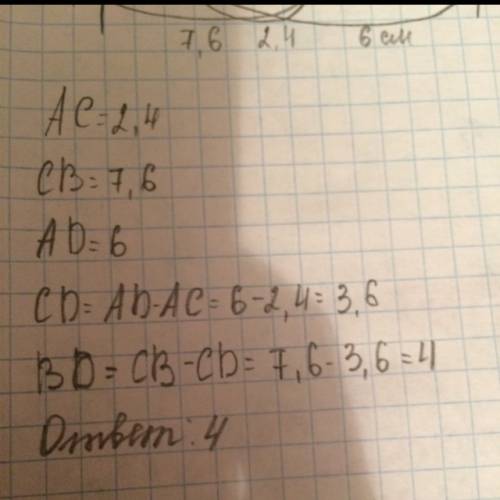 7,6 2,4 6 см
AC=2,4
CB=7,6
AD=6
CD=AD-AC=6-2,4=3,6
BD=CB-CD=7,6-3,6=4
Ответ: 4